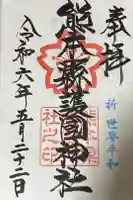 奉拝
祈 世界平和
熊本縣護國神社
令和六年五月二十二日